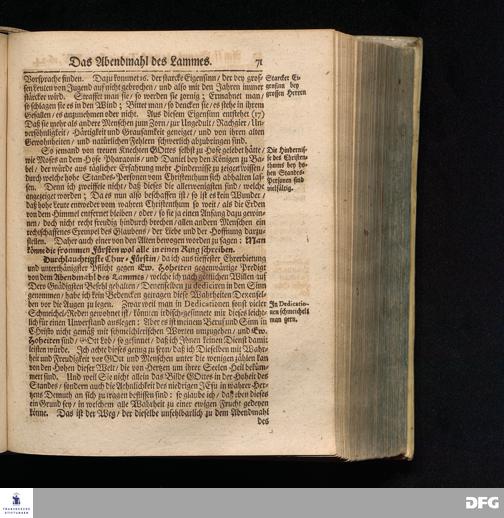 Das Abendmahl des Lammes. 71
Vorsprache finden. Dazu kommet 16. der starcke Eigensinn / der bey gros-
sen Leuten von Jugend auf nicht gebrochen / und also mit den Jahren immer
stärcker wird. Straffet man sie / so werden sie zornig; Ermahnet man /
so schlagen sie es in den Wind; Bittet man / so dencken sie / es stehe in ihrem
Gefallen / es anzunehmen oder nicht. Aus diesem Eigensinn entstehet (17)
Daß sie mehr als andere Menschen zum Zorn / zur Ungedult / Rachgier / Un-
versöhnligkeit / Härtigkeit und Grausamkeit geneiget / und von ihren alten
Gewohnheiten / und natürlichen Fehlern schwerlich abzubringen sind.
Starcker Ei-
gensinn bey
grossen Herren
So iemand von treuen Knechten GOttes selbst zu Hofe gelebet hätte /
wie Moses an dem Hofe Pharaonis / und Daniel bey den Königen zu Ba-
bel / der würde aus täglicher Erfahrung mehr Hindernisse zu zeigen wissen /
durch welche hohe Standes-Personen vom Christenthum sich abhalten las-
sen. Denn ich zweiffele nicht / daß dieses die allerwenigsten sind / welche
angezeiget worden; Da es nun also beschaffen ist / so ist es kein Wunder /
daß hohe Leute entweder vom wahren Christenthum so weit / als die Erden
von dem Himmel entfernet bleiben / oder / so sie ja einen Anfang dazu gewin-
nen / doch nicht recht freudig hindurch brechen / allen andern Menschen ein
rechtschaffenes Exempel des Glaubens / der Liebe und der Hoffnung darzu-
stellen. Daher auch einer von den Alten bewogen worden zu sagen: Man
könne die frommen Fürsten wol alle in einen Ring schreiben.
Die Hindernis-
se des Christen-
thums bey ho-
hen Standes-
Personen sind
vielfältig.
Durchlauchtigste Chur-Fürstin / da ich aus tieffester Ehrerbietung
und unterthänigster Pflicht gegen Ew. Hoheiten gegenwärtige Predigt
von dem Abendmahl des Lammes / welche ich nach göttlichen Willen auf
Dero Gnädigsten Befehl gehalten / Denenselben zu dediciren in den Sinn
genommen / habe ich kein Bedencken getragen diese Wahrheiten Dexensel-
ben vor die Augen zu legen. Zwar weil man in Dedicationen sonst vieler
Schmeichel-Reden gewohnet ist / könnten irdisch-gesinnete mir dieses leicht-
lich für einen Unverstand auslegen: Aber es ist meinem Beruf und Sinn in
Christo nicht gemäß mit schmeichlerischen Worten umzugehen / und Ew.
Hoheiten sind / GOtt Lob / so gesinnet / daß ich Ihnen keinen Dienst damit
leisten würde. Ich achte dieses genug zu seyn / daß ich Dieselben mit Wahr-
heit und Freudigkeit vor GOtt und Menschen unter die wenigen zählen kan
von den Hohen dieser Welt / die von Hertzen um ihrer Seelen Heil beküm-
mert sind. Und weil Sie nicht allein das Bilde GOttes in der Hoheit des
Standes / sondern auch die Aehnlichkeit des niedrigen JEsu in wahrer Her-
tzens Demuth an sich zu tragen beflissen sind: so glaube ich / daß eben dieses
ein Grund sey / in welchem alle Wahrheit zu einer ewigen Frucht gedeyen
könne. Das ist der Weg / der dieselbe unfehlbarlich zu dem Abendmahl
des
In Dedicatio-
nen schmeichelt
man gern.
FRANCKESCHE
STIFTUNGEN
DFG